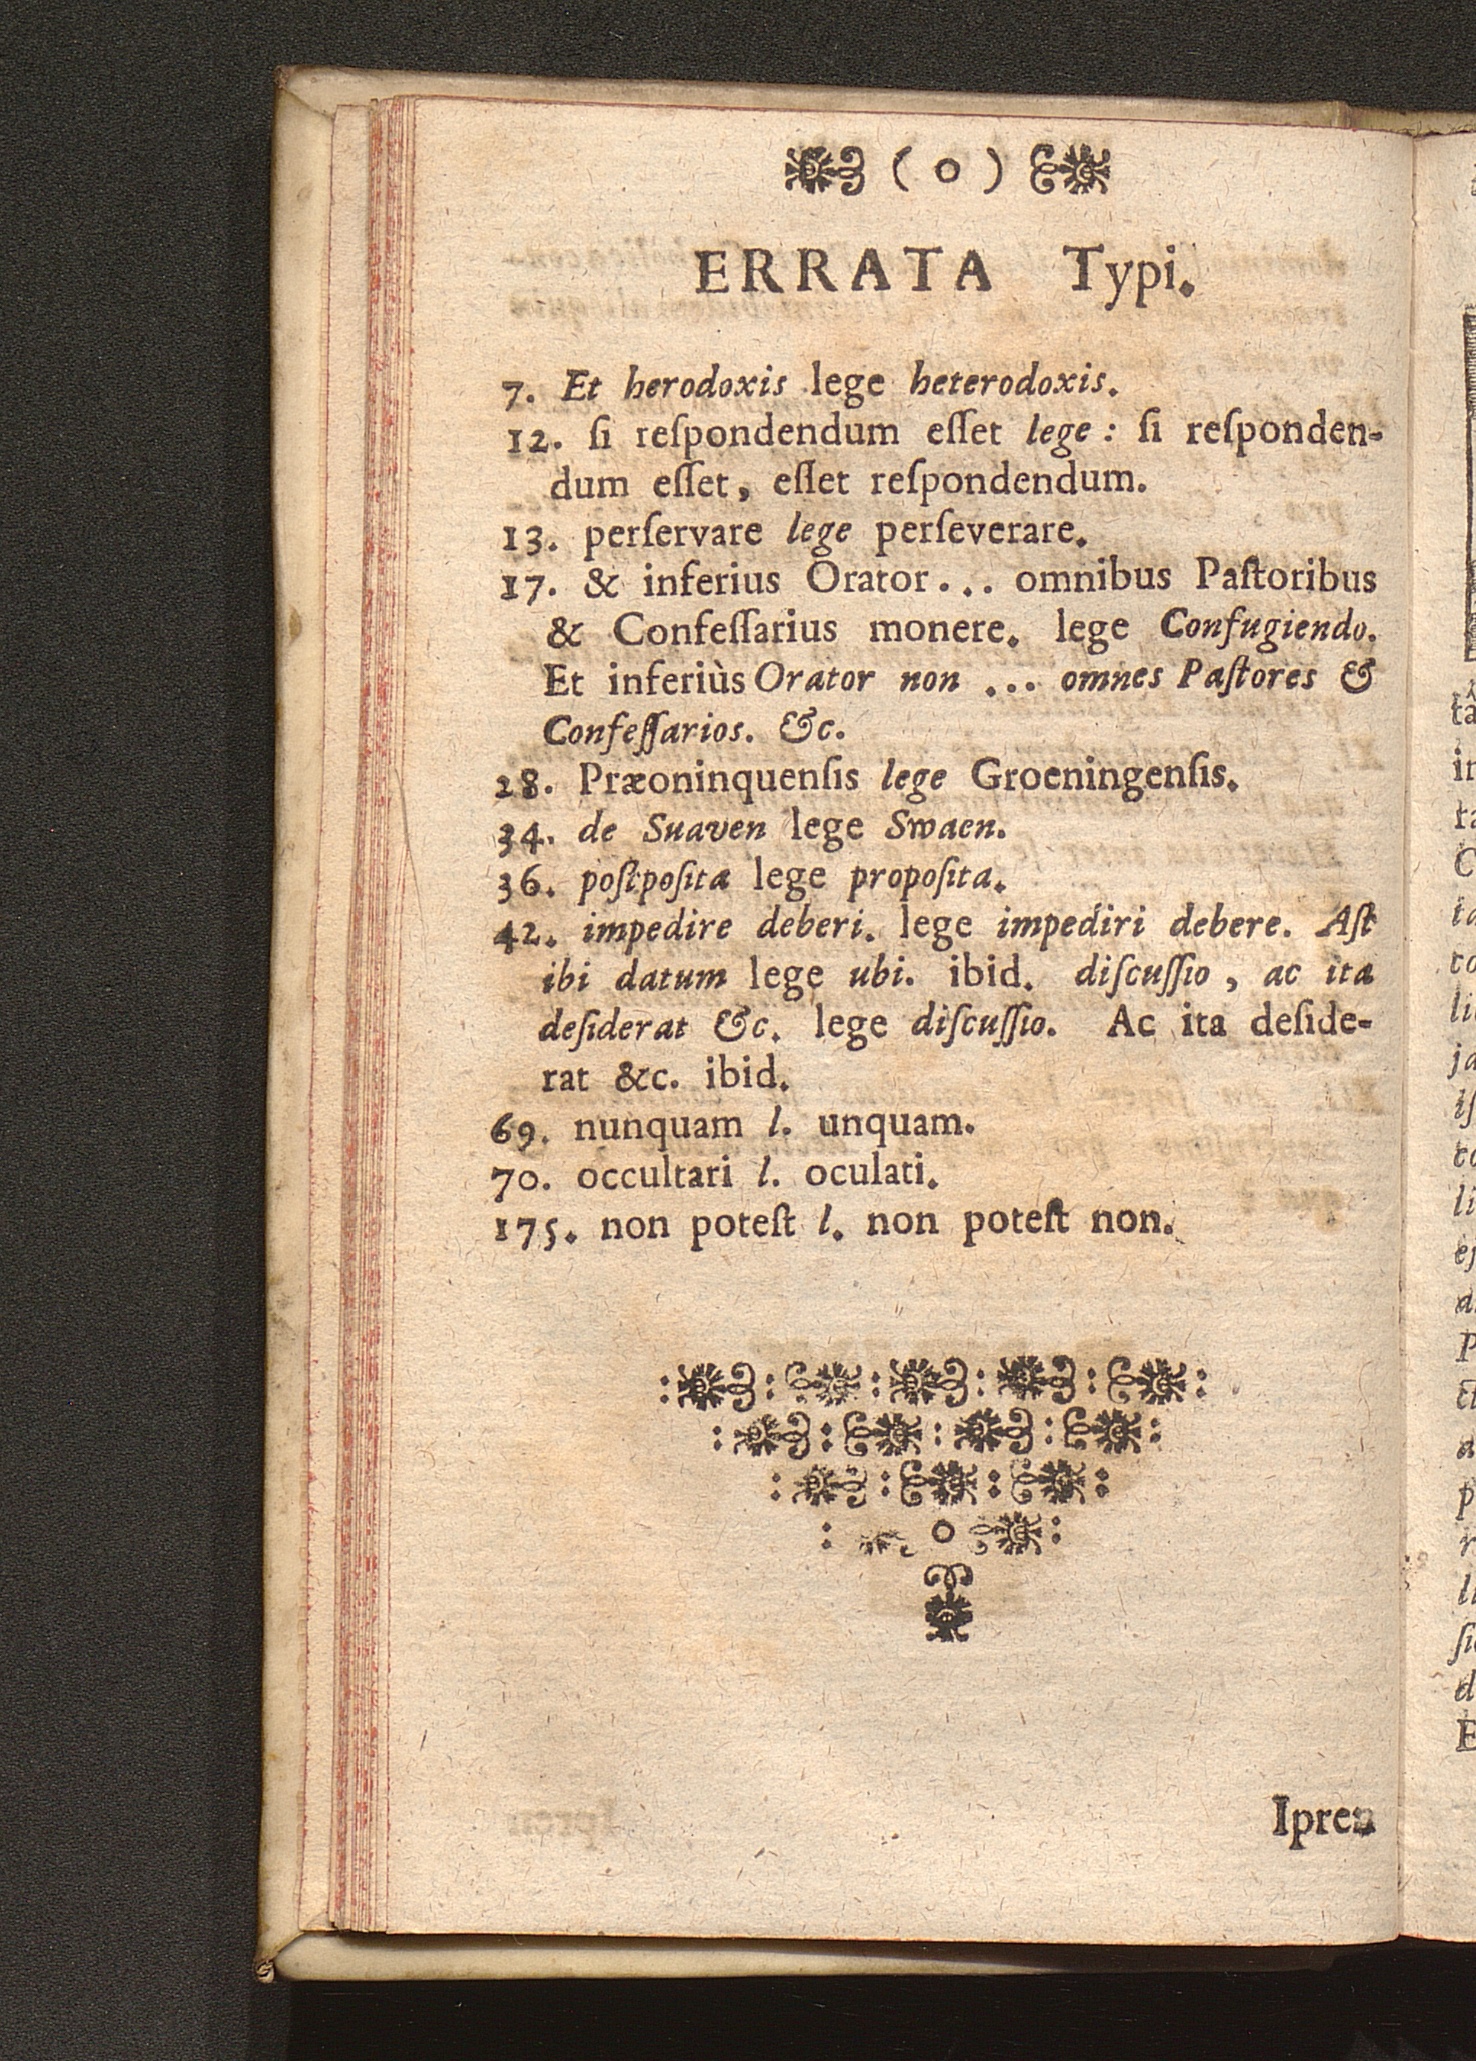 ( o )
ERRATA Typi.
7. Et herodoxis lege heterodoxis.
12. ſi reſpondendum eſſet lege : ſi reſponden-
dum eſſet, eſſet reſpondendum.
13. perſervare lege perſeverare.
17. & inferius Orator... omnibus Paſtoribus
& Confeſſarius monere. lege Confugiendo.
Et inferiùs Orator non ... omnes Paſtores &
Confeſſarios. &c.
28. Præoninquenſis lege Groeningenſis.
34. de Suaven lege Swaen.
36. poſtpoſita lege propoſita.
42. impedire deberi. lege impediri debere. Aſt
ibi datum lege ubi. ibid. diſcuſſio, ac ita
deſiderat &c. lege diſcuſſio. Ac ita deſide-
rat &c. ibid.
69. nunquam l. unquam.
70. occultari l. oculati.
175. non poteſt l. non poteſt non.
o
Ipren